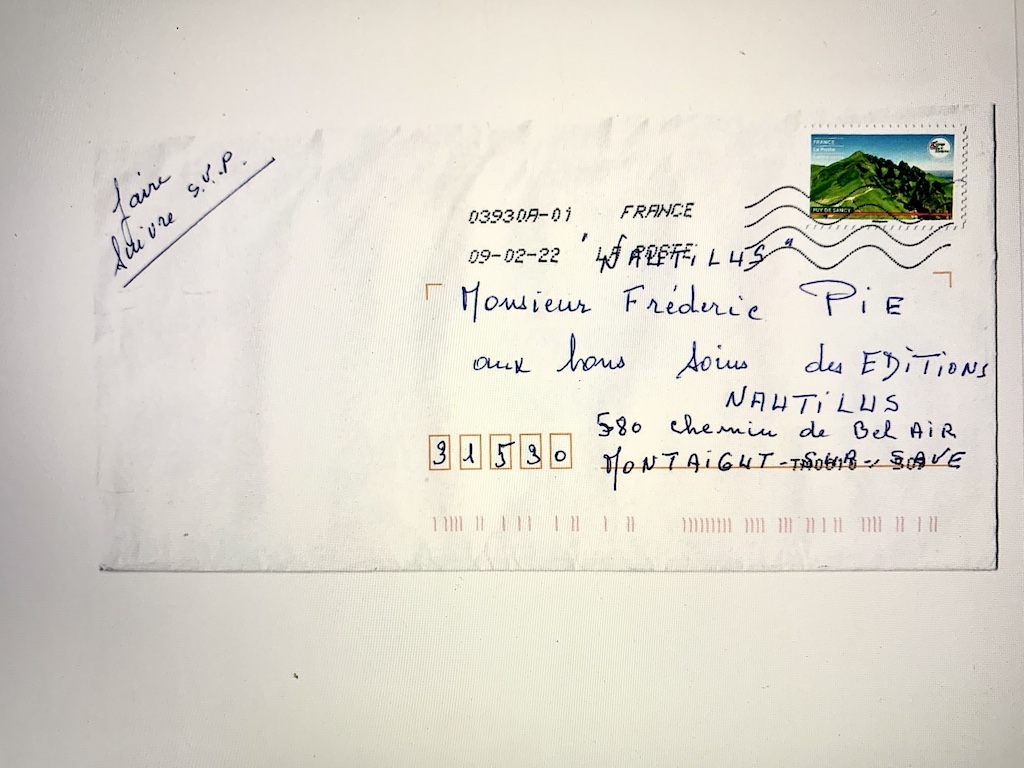 faire
suivre S.V.P.
FRANCE
La Poste
PUY DE SANCY
03930A-01 FRANCE
09-02-22 LA POSTE
"NAUTILUS"
Monsieur Fréderic PiE
aux bons soins des EDiTiONS
NAUTiLUS
580 chemin de Bel AiR
31530 MONTAiGUT-SUR-SAVE